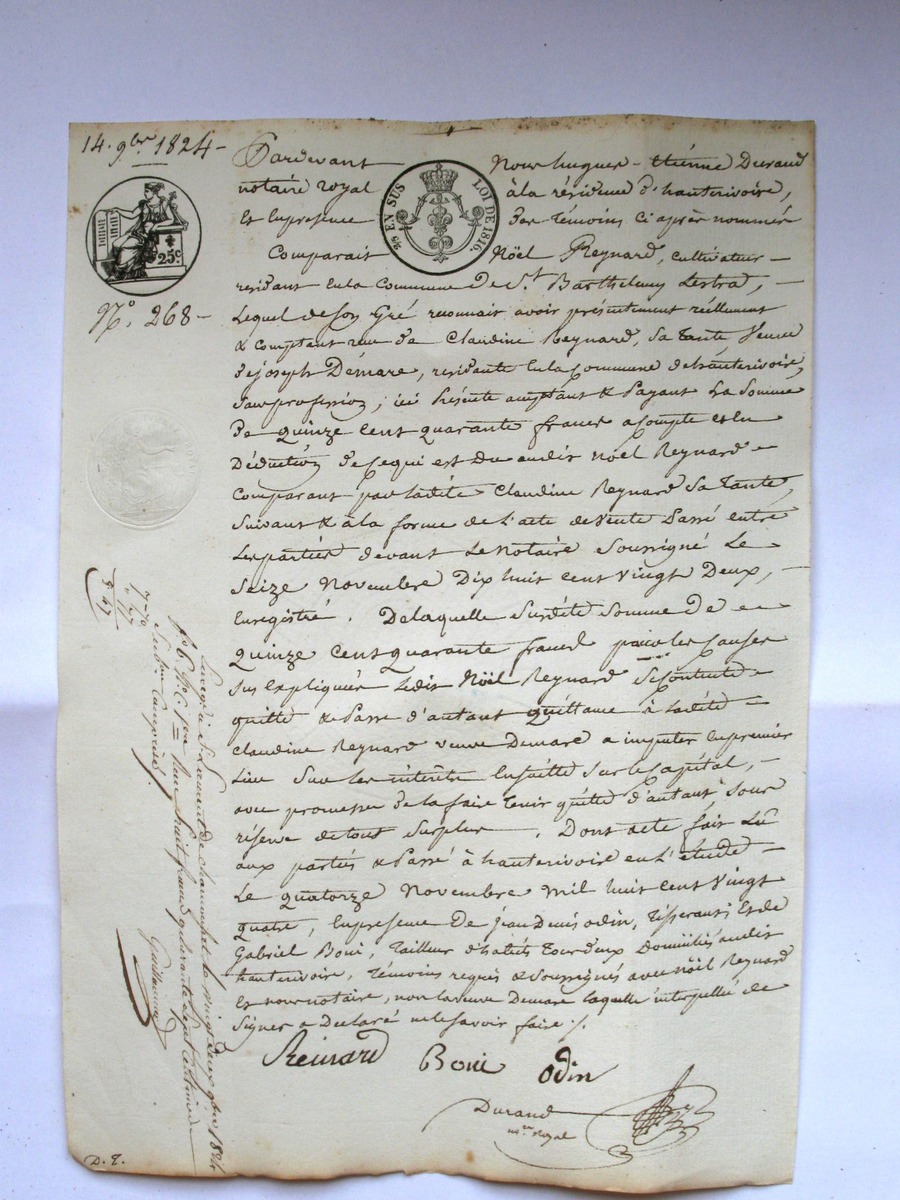 14. 9bre 1824 -
Pardevant Nous hugues - étienne Durand
notaire royal à la résidence d'hauterivoire,
Et En presence des témoins ci après nommés
25 EN SUS LOI DE 1816.
25c
Comparait Nöel Reynard, cultivateur -
residant en la Commune de St. Barthelemy Lestra, -
N° 268 -
Lequel de son Gré reconnait avoir présentement réellement
& comptant reçu de Claudine Reynard, Sa tante, Veuve
de joseph Démare, residante En la Commune d'hauterivoire,
Sans profession, ici Présente acceptant & Payant La Somme
de Quinze Cent quarante francs a compte et En
Déduction de Ce qui est Du audit Nöel Reynard -
Comparant par ladite Claudine Reynard Sa tante,
Suivant & à la forme de L'acte de Vente Passé entre
Les parties devant Le Notaire Soussigné Le
Seize Novembre Dix huit cent Vingt Deux, -
Enregistré. De laquelle Susdite Somme de -
Quinze Cent quarante francs pour les Causes
Sus Expliquées Ledit Nöel Reynard Se Contente -
quitte & Passe d'autant Quittance à Ladite -
Claudine Reynard veuve Demare a imputer En premier
Lieu Sur les intérêts Ensuitte Sur le Capital, -
avec promesse de la faire tenir quitte d'autant Sous
réserve de tout Surplus -. Dont acte fait Lu
aux parties & Passé à hauterivoire en L'étude -
Le quatorze Novembre Mil huit cent Vingt
quatre, En presence De jean Denis odin, tisserant, Et de
Gabriel Boni, tailleur d'habits tous deux Domiciliés audit
hauterivoire, témoins requis & Soussignés avec Nöel Reynard
Et nous notaire, non la veuve Demare laquelle interpellée de
Signer a Declaré ne le Savoir faire ./.
Reinard Boni Odin
Durand
nre. Royal
Enregé à St Laurent de chamousset le vingt deux 9bre 1824
fo 6 Ro C. 1ere Reçu huit francs quarante Sept Centimes
Subon. Comprise.
Guillaume
7 70
77
8 47
D. E.